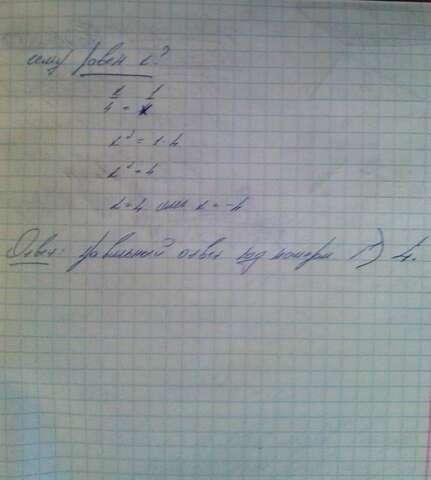 чему равен x?
x 1
4 = x
x² = 1·4
x² = 4
x = 4 или x = -4
Ответ: правильный ответ под номером 1) 4.